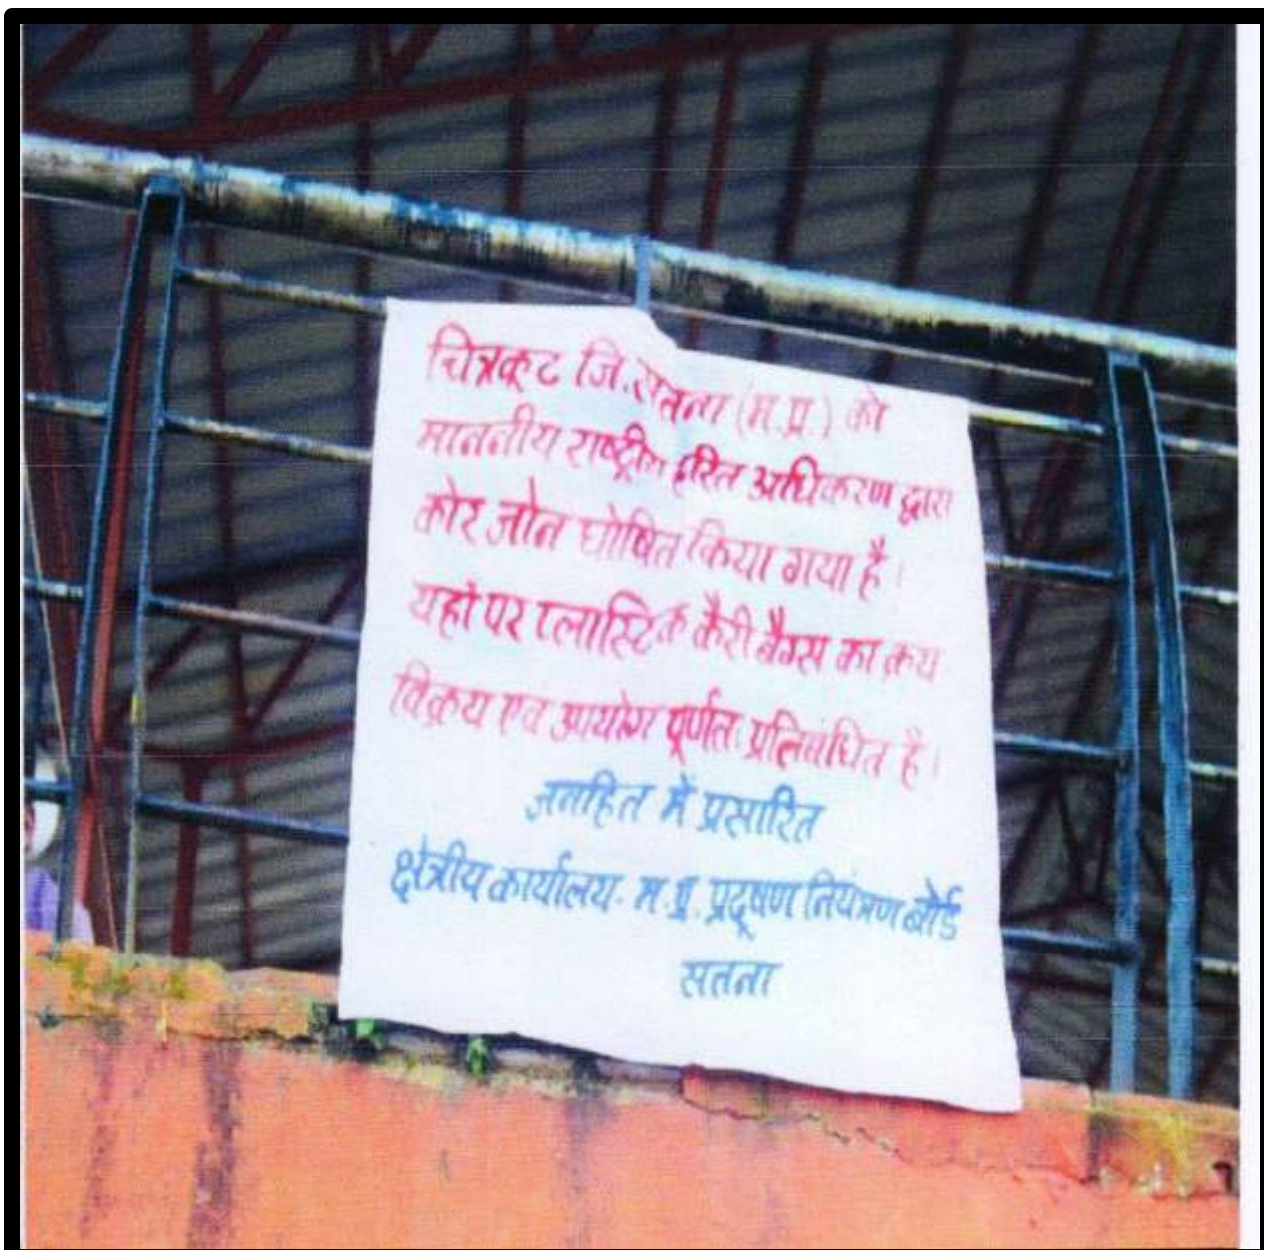 चित्रकूट जि. सतना (म.प्र.) को
माननीय राष्ट्रीय हरित अधिकरण द्वारा
कोर जोन घोषित किया गया है।
यहां पर प्लास्टिक कैरी बैग्स का क्रय
विक्रय एवं उपयोग पूर्णतः प्रतिबंधित है।
जनहित में प्रसारित
क्षेत्रीय कार्यालय. म.प्र. प्रदूषण नियंत्रण बोर्ड
सतना